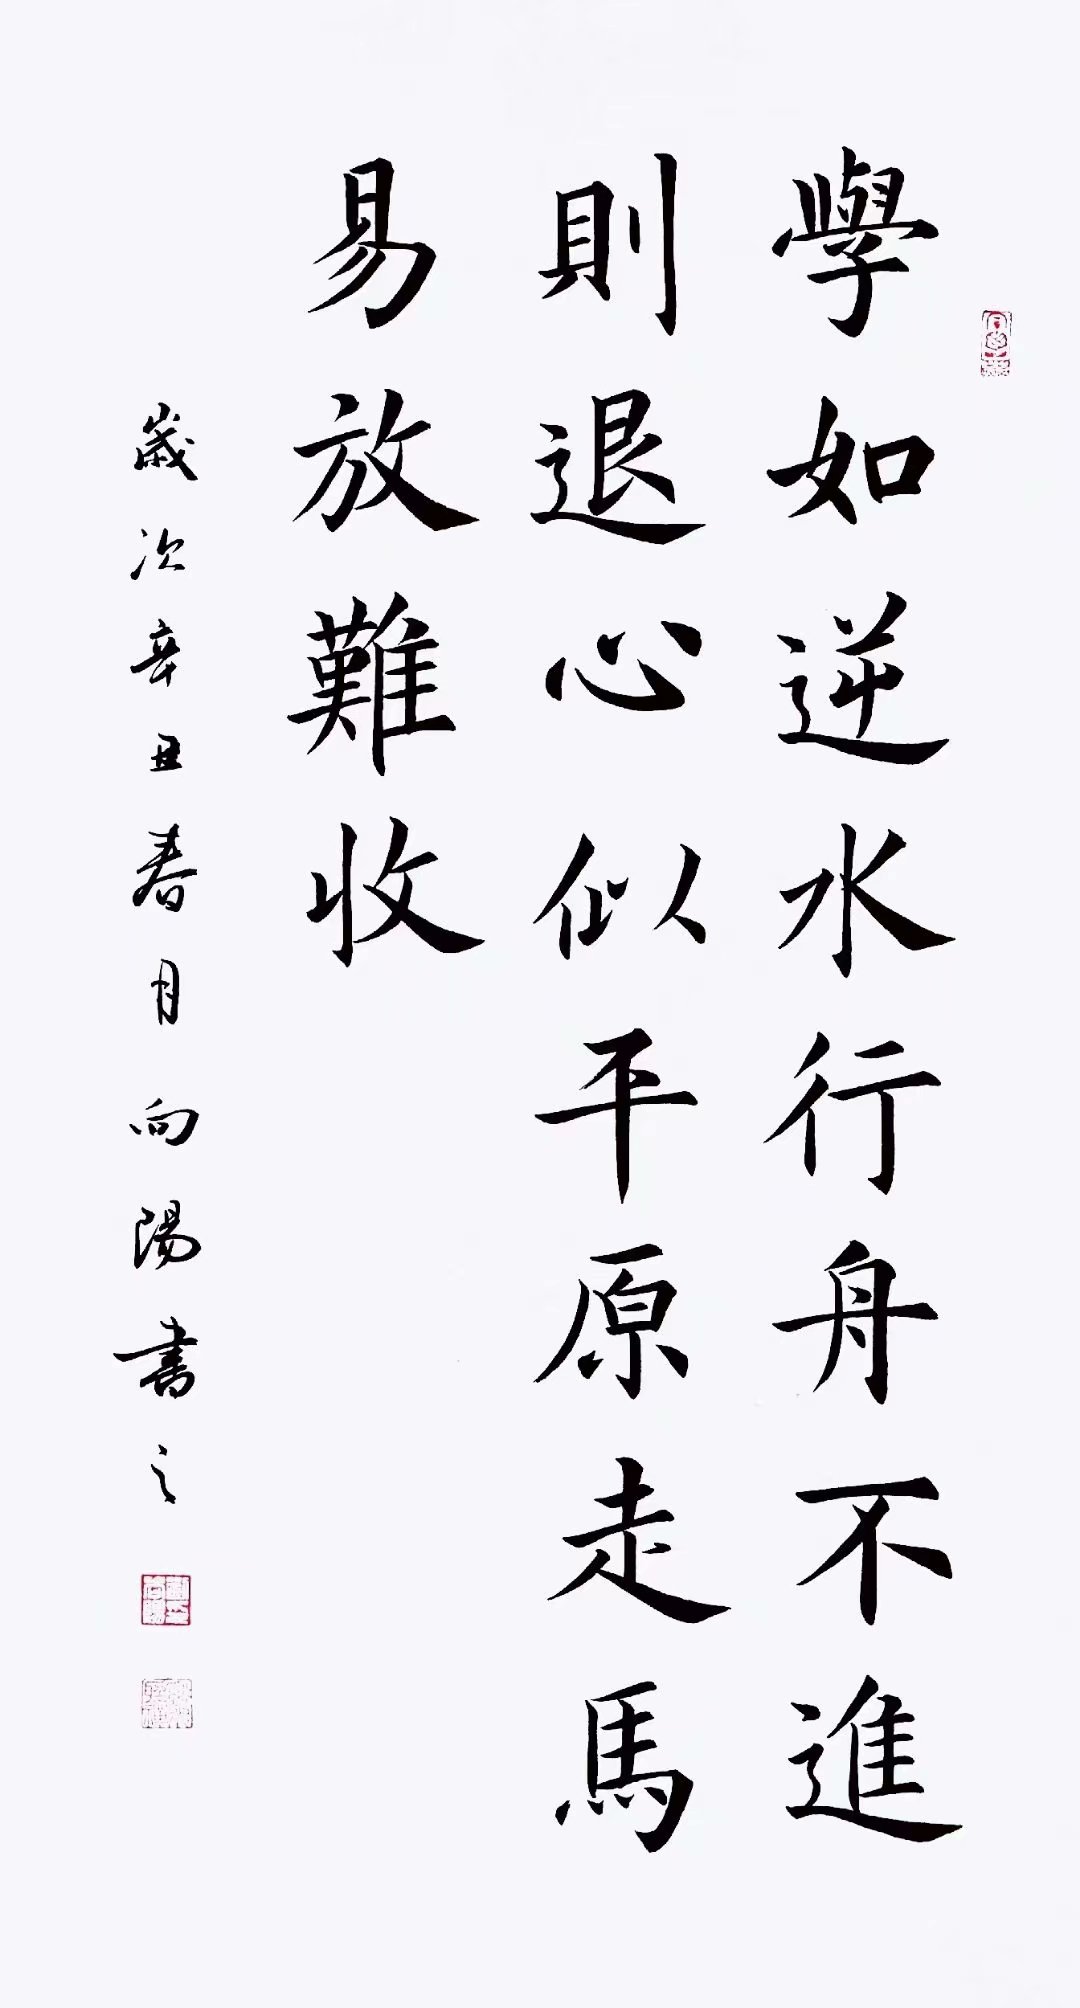 學如逆水行舟不進
則退心似平原走馬
易放難收
歲次辛丑春月向陽書之